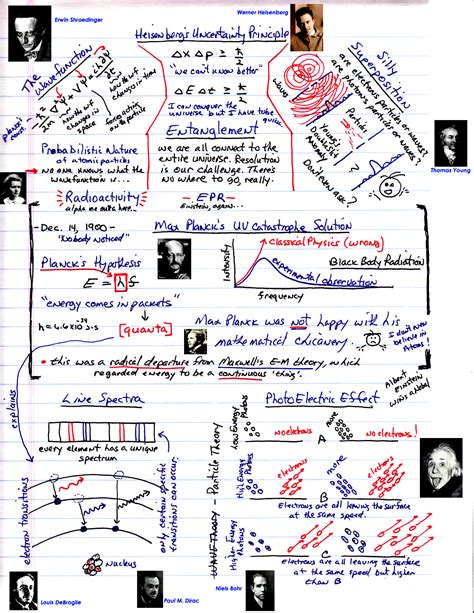 Erwin Shroedinger
Werner Heisenberg
Heisenberg's Uncertainty Principle
Δx Δp ≥ ħ/2
"we can't know better"
ΔE Δt ≥ ħ/2
I can conquer the
universe but I have to be
quick
The
Wavefunction
how the wf
changes in time
how the wf
changes in
space
Probabilistic Nature
of atomic particles
no one knows what the
wavefunction is...
Silly
Superposition
are electrons particles or waves?
are photons particles or waves?
waves
Particle
Young
Don't even ask?
Thomas Young
Entanglement
we are all connect to the
entire universe. Resolution
is our challenge. There's
no where to go really.
Radioactivity
- EPR -
Einstein, again...
- Dec. 14, 1900 -
"Nobody noticed"
Max Planck's UV catastrophe Solution
classical Physics (wrong)
Black Body Radiation
experimental observation
Intensity
frequency
Planck's Hypothesis
E = hf
"energy comes in packets"
[quanta]
Max Planck was not happy with his
mathematical chicanery.
I don't even
believe in
• this was a radical departure from Maxwell's E-M theory, which
regarded energy to be a continuous 'thing'.
explains
Albert
Einstein
wins a Nobel
Line Spectra
every element has a unique
spectrum
electron transitions
only certain specific
transitions can occur.
nucleus
PhotoElectric Effect
Wave Theory - Particle Theory
Low Energy
Photons
no electrons
more
no electrons!
A
High Energy
Photons
electrons
more
electrons
B
Electrons are all leaving the surface
at the same speed.
Higher Energy
Photons
electrons
electrons
Electrons are all leaving the surface
at the same speed but higher
than B
Louis DeBroglie
Paul M. Dirac
Niels Bohr